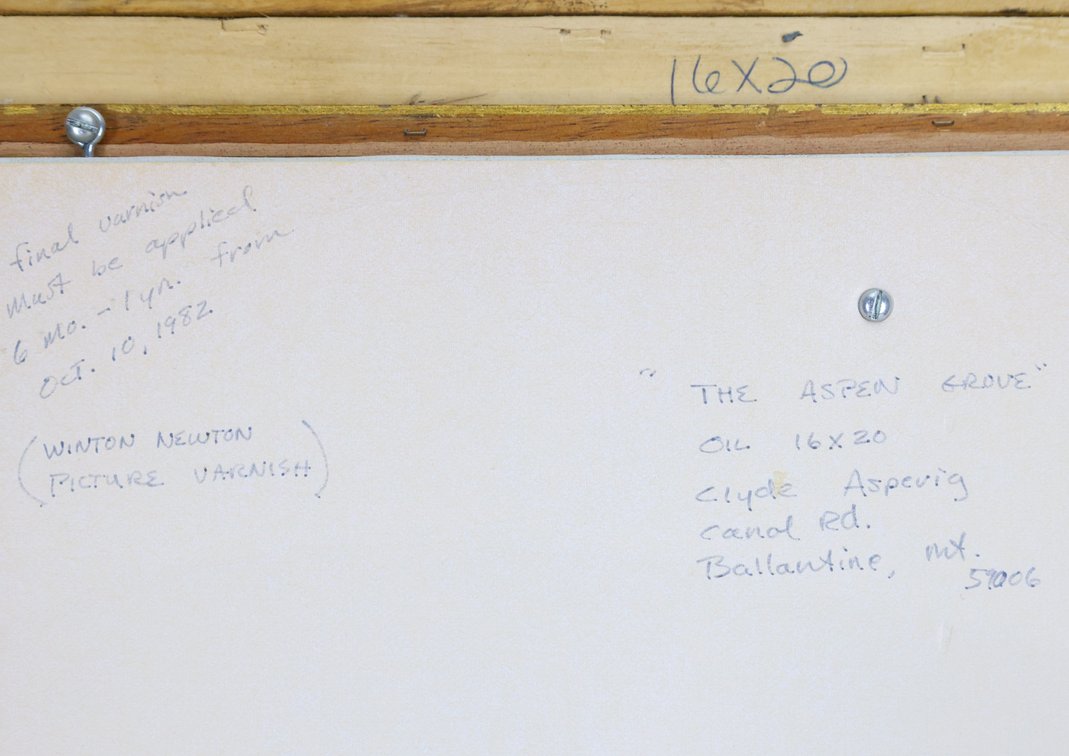 16X20
final varnish
must be applied
6 mo. - 1 yr. from
Oct. 10, 1982
(WINTON NEWTON
PICTURE VARNISH)
"THE ASPEN GROVE"
OIL 16X20
Clyde Aspevig
Canal Rd.
Ballantine, Mt.
59006